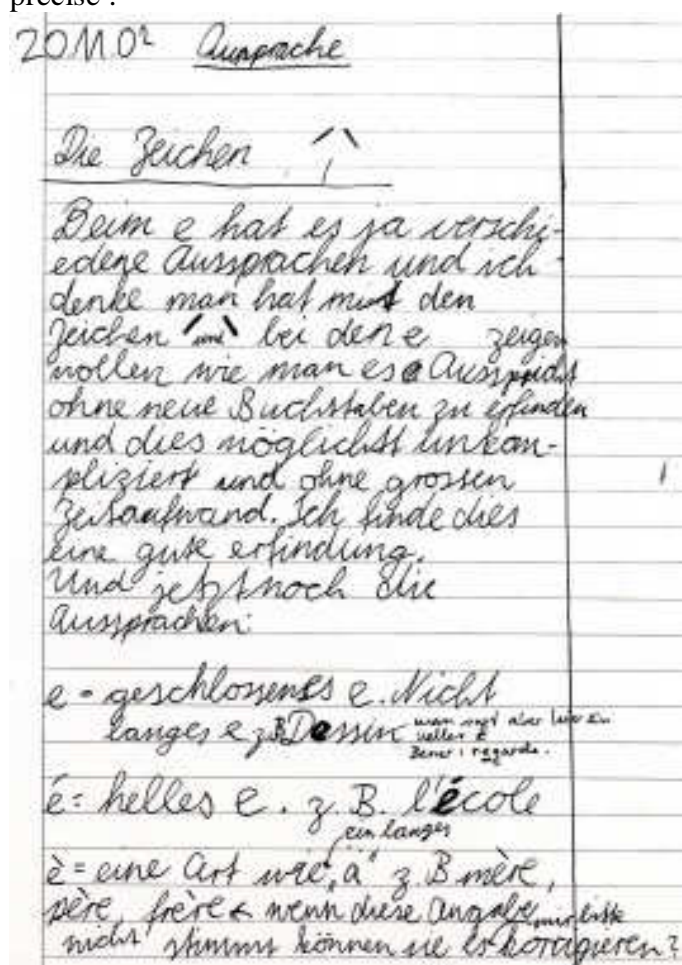 precise :
2011.02 Aussprache
Die Zeichen ´ `
Beim e hat es ja verschi-
edene Aussprachen und ich
denke man hat mit den
Zeichen ´ und ` bei den e zeigen
wollen wie man es Ausspricht
ohne neue Buchstaben zu erfinden
und dies möglichst unkom-
pliziert und ohne grossen
Zeitaufwand. Ich finde dies
eine gute erfindung.
Und jetzt noch die
Aussprachen:
e = geschlossenes e. Nicht
langes e z.B Dessin
man aber
Besser: regarde.
é = helles e. z. B. l'école
ein langes
è = eine Art wie "ä" z. B mère,
père, frère ← wenn diese Angabe
nicht stimmt können sie es mir bitte koragieren?